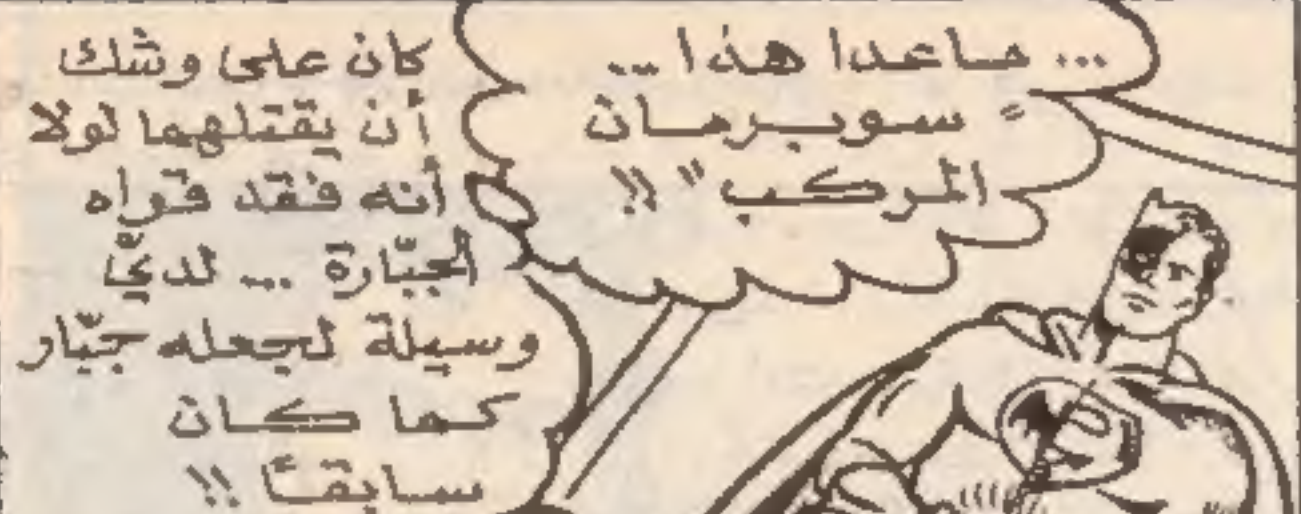 ... ماعدا هذا ...
" سوبرمان
المركب " !!
كان على وشك
أن يقتلهما لولا
أنه فقد قواه
الجبّارة ... لديّ
وسيلة لجعله جبّار
كما كان
سابقاً !!